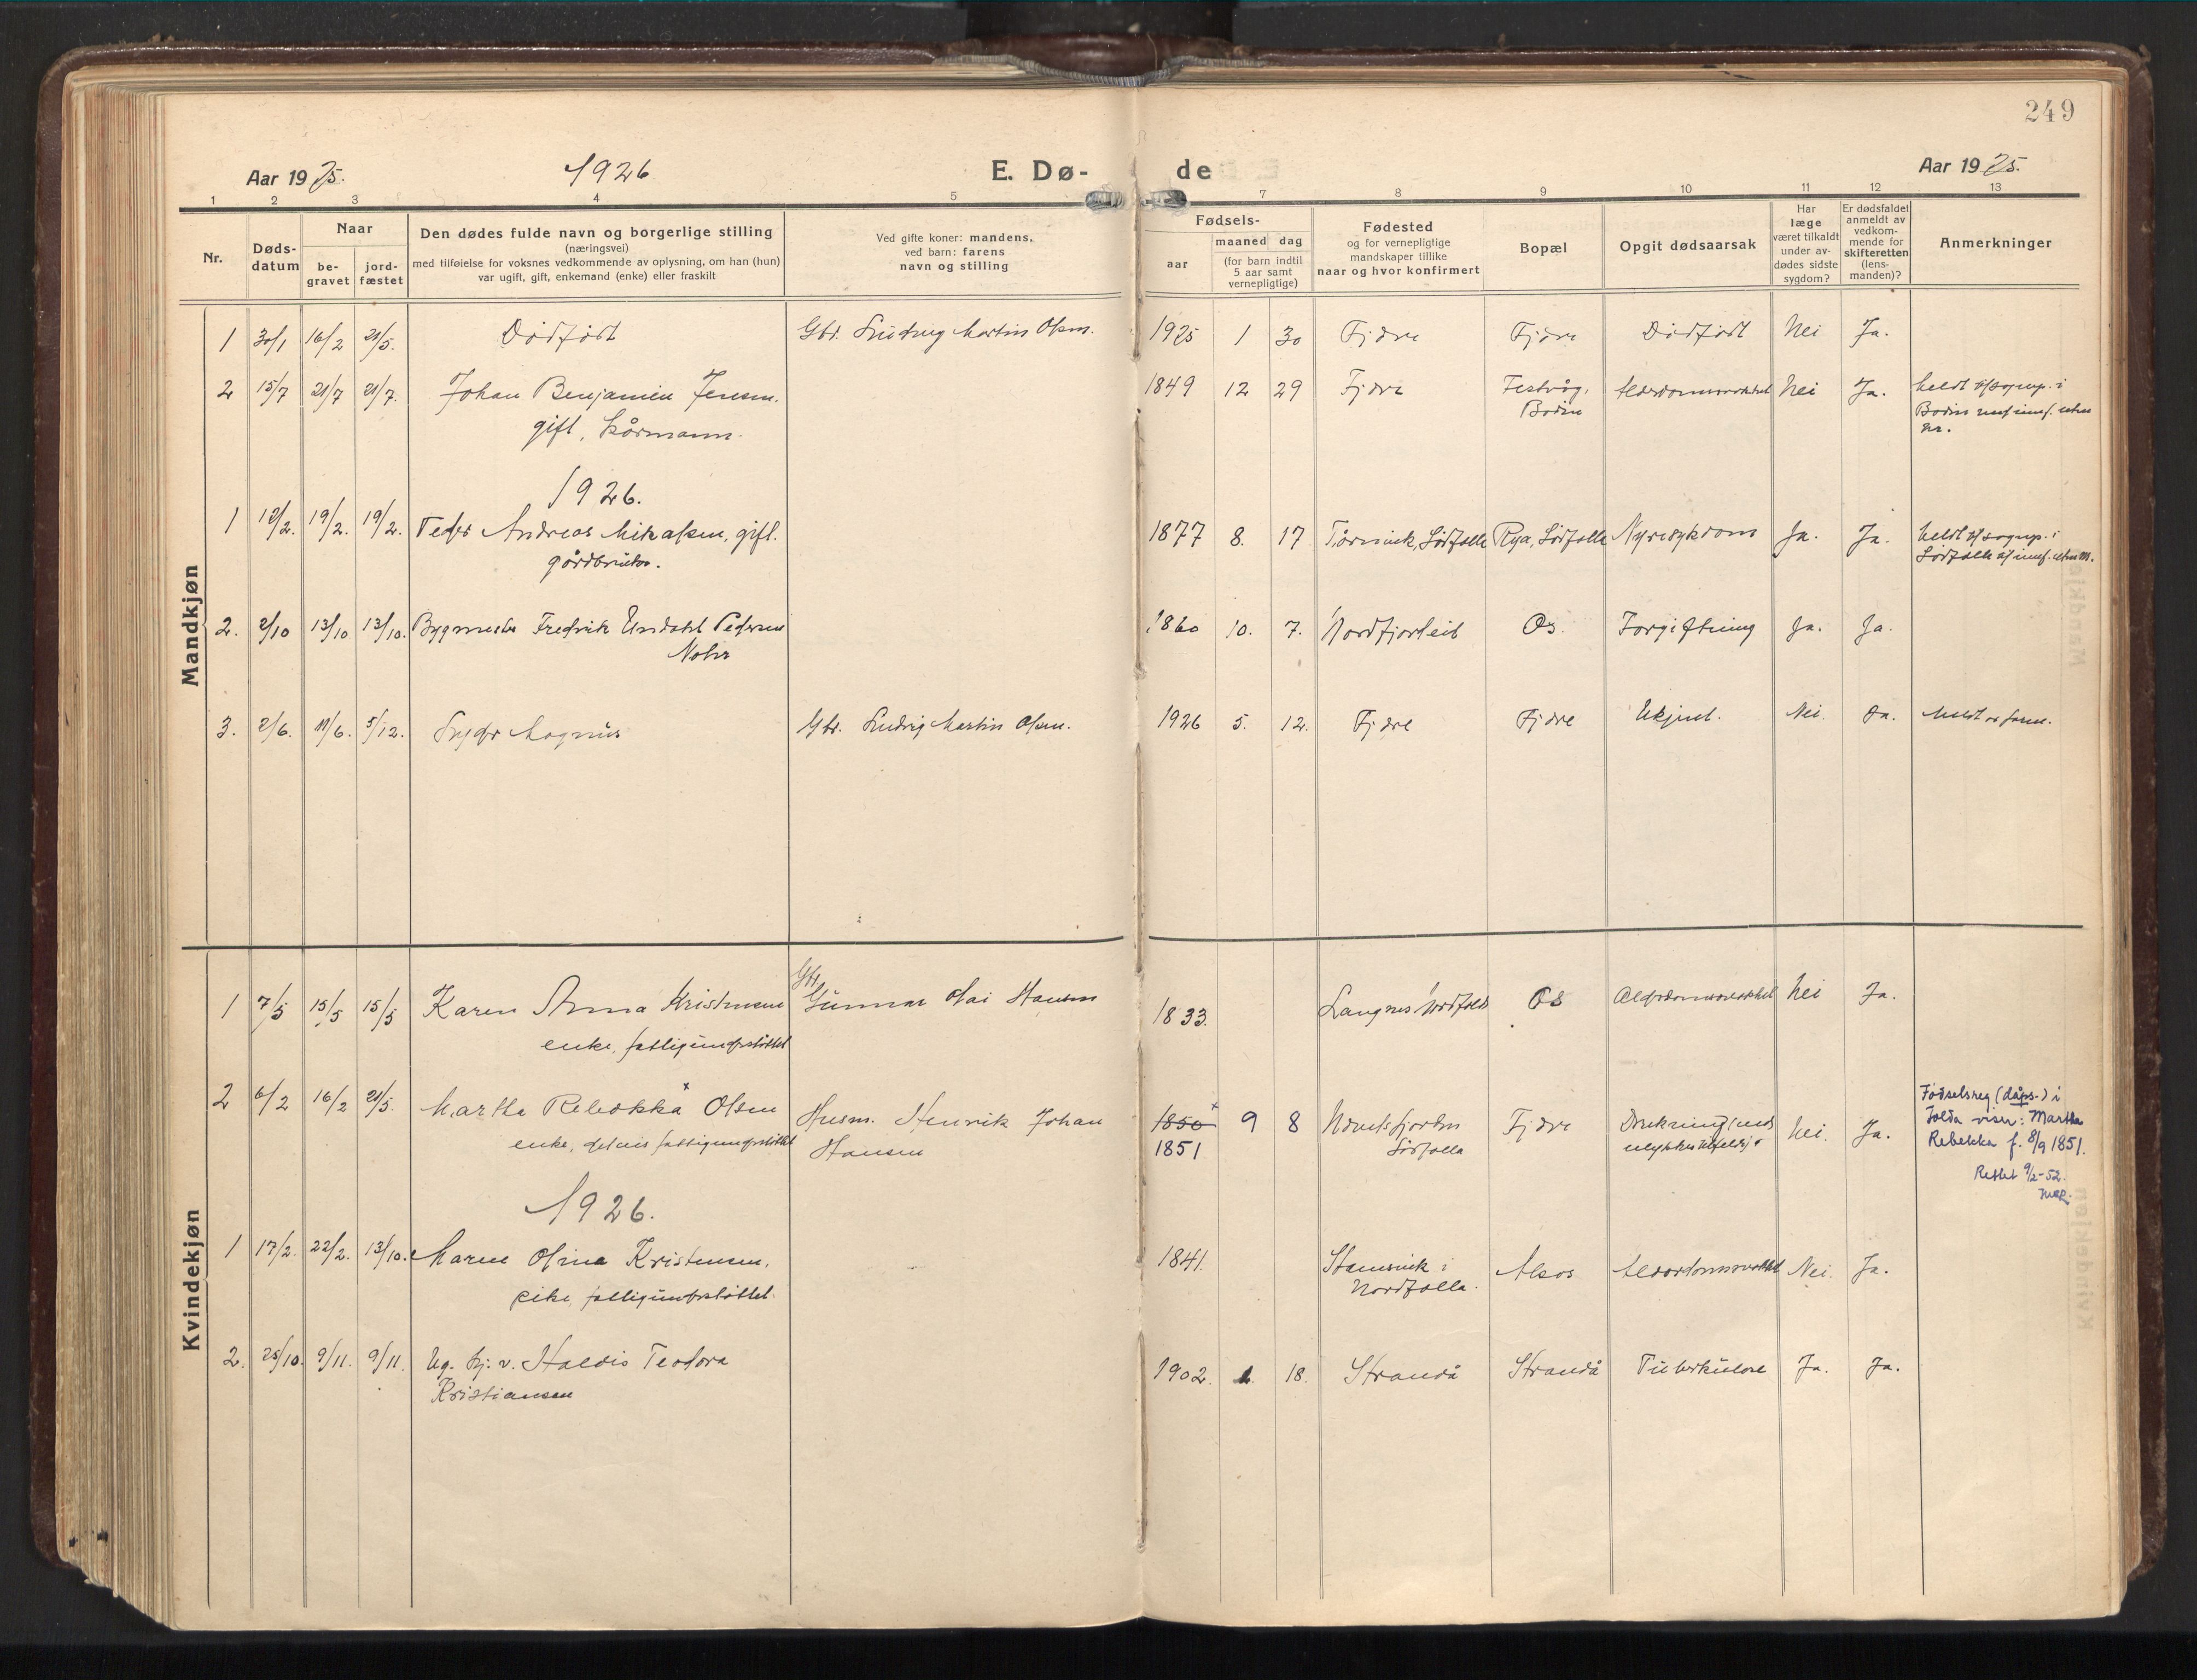 249
Aar 1925. 1926 E. Dø- de Aar 1925.
1 2 3 4 5 7 8 9 10 11 12 13
Nr.
Døds-
datum
Naar
be-
gravet
jord-
fæstet
Den dødes fulde navn og borgerlige stilling
(næringsvei)
med tilføielse for voksnes vedkommende av oplysning, om han (hun)
var ugift, gift, enkemand (enke) eller fraskilt
Ved gifte koner: mandens,
ved barn: farens
navn og stilling
Fødsels-
aar
maaned dag
(for barn indtil
5 aar samt
vernepligtige)
Fødested
og for vernepligtige
mandskaper tillike
naar og hvor konfirmert
Bopæl
Opgit dødsaarsak
Har
læge
været tilkaldt
under av-
dødes sidste
sygdom?
Er dødsfaldet
anmeldt av
vedkom-
mende for
skifteretten
(lens-
manden)?
Anmerkninger
Mandkjøn
1 30/1 16/2 21/5. Dødfødt Gbr. Ludvig Martin Olsen. 1925 1 30 Fjære Fjære Dødfødt Nei Ja.
2 15/7 21/7 21/7. Johan Benjamin Jensen. 1849 12 29 Fjære Festvåg, Alderdomssvakhet Nei Ja. Meldt sognep. i
gift, kårmann. Bodin Bodin uten
nr.
1926.
1 12/2. 19/2. 19/2. Peder Andreas Mikalsen, gift. 1877 8. 17 Tårnvik, Sørfolla Røa, Sørfolla Nyresykdom Ja. Ja. Meldt sognep. i
gårdbruker. Sørfolla uten nr.
2. 2/10 13/10 13/10. Bygmester Fredrik Undahl Pedersen 1860 10. 7. Nordfjorleit Os. Forgiftning Ja. Ja.
Nohr
3. 2/6. 11/6. 5/12. Magnus Gbr. Ludvig Martin Olsen. 1926 5. 12. Fjære Fjære Ukjent. Nei. Ja. Meldt av faren.
Kvindekjøn
Gbr.
1 7/5 15/5 15/5 Karen Anna Kristensen Gunnar Olai Hansen 1833. Langnes Nordfold Os Alderdomssvakhet Nei Ja.
enke, fattigunderstøttet
2 6/2 16/2 21/5. Martha Rebekka x Olsen Husm. Henrik Johan 1850 x 9 8 Sørfolla Fjære Drukning Nei. Ja.
enke, delvis fattigunderstøttet Hansen 1851
Fødselsreg (dåps-) i
Folda viser: Martha
Rebekka f. 8/9 1851.
Rettet 9/2-52.
1926.
1 17/2. 22/2. 13/10. Maren Olina Kristensen, 1841. Stamsvik i Alsos Alderdomssvakhet Nei. Ja.
pike, fattigunderstøttet. Nordfolla.
2. 25/10. 9/11. 9/11. Ug. tj. v. Haldis Teodora 1902. 2. 18. Strandå Strandå Tuberkulose Ja. Ja.
Kristiansen